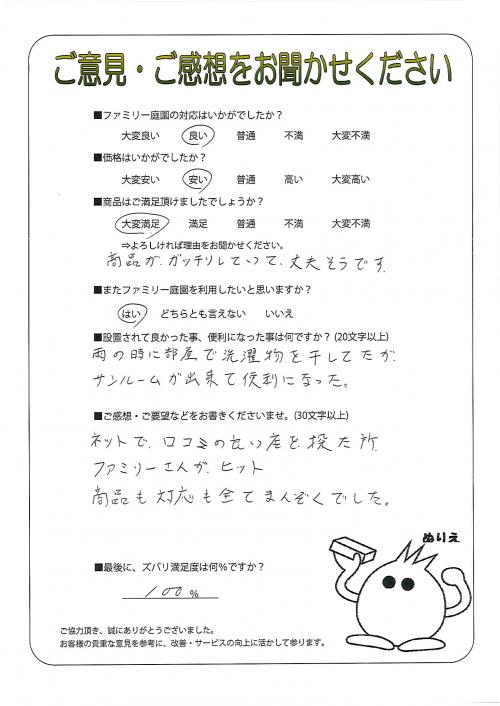 ご意見・ご感想をお聞かせください
■ファミリー庭園の対応はいかがでしたか？
大変良い 良い 普通 不満 大変不満
■価格はいかがでしたか？
大変安い 安い 普通 高い 大変高い
■商品はご満足頂けましたでしょうか？
大変満足 満足 普通 不満 大変不満
⇒よろしければ理由をお聞かせください。
商品が、ガッチリしていて、丈夫そうです。
■またファミリー庭園を利用したいと思いますか？
はい どちらとも言えない いいえ
■設置されて良かった事、便利になった事は何ですか？(20文字以上)
雨の時に部屋で洗濯物を干してたが、
サンルームが出来て便利になった。
■ご感想・ご要望などをお書きくださいませ。(30文字以上)
ネットで、口コミの良い店を探た所、
ファミリーさんが、ヒット
商品も対応も全てまんぞくでした。
ぬりえ
■最後に、ズバリ満足度は何％ですか？
100 %
ご協力頂き、誠にありがとうございました。
お客様の貴重な意見を参考に、改善・サービスの向上に活かして参ります。